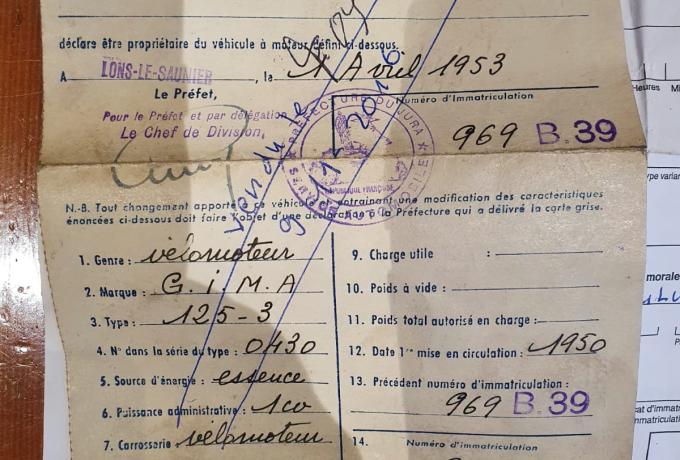 déclare être propriétaire du véhicule à moteur défini ci-dessous.
A LONS-LE-SAUNIER, le 1 Avril 1953
Le Préfet,
Pour le Préfet et par délégation
Le Chef de Division,
Numéro d'Immatriculation
969 B.39
PRÉFECTURE DU JURA
RÉPUBLIQUE FRANÇAISE
vendu le
2016
N.-B. Tout changement apporté à ce véhicule entraînant une modification des caractéristiques
énoncées ci-dessous doit faire l'objet d'une déclaration à la Préfecture qui a délivré la carte grise.
1. Genre : vélomoteur
2. Marque : G.I.M.A
3. Type : 125-3
4. N° dans la série du type : 0430
5. Source d'énergie : essence
6. Puissance administrative : 1cv
7. Carrosserie : vélomoteur
9. Charge utile :
10. Poids à vide :
11. Poids total autorisé en charge :
12. Date 1re mise en circulation : 1950
13. Précédent numéro d'immatriculation :
969 B.39
14. Numéro d'immatriculation
Heures
Mi
ype varian
morale